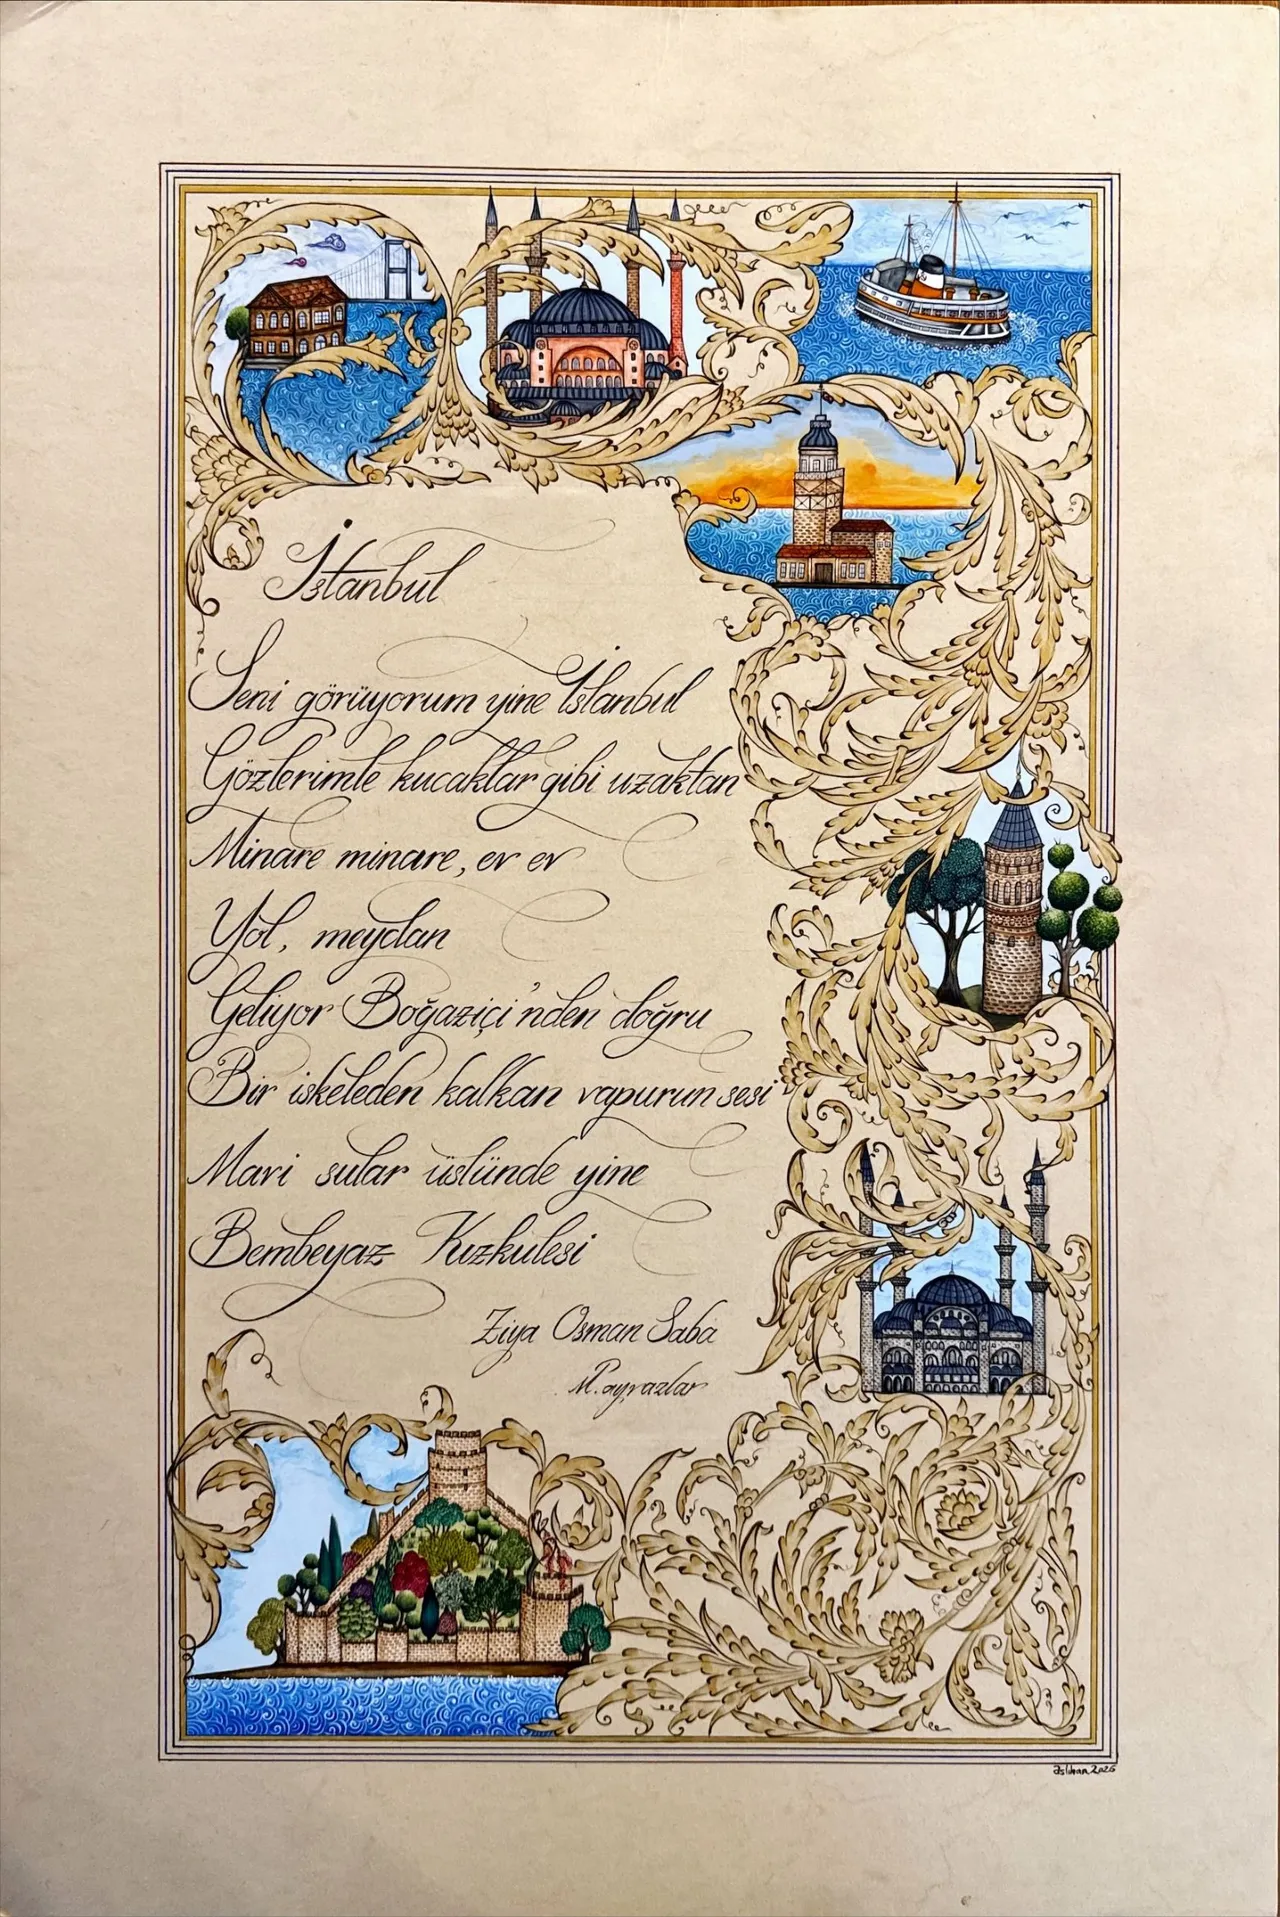 İstanbul
Seni görüyorum yine İstanbul
Gözlerimle kucaklar gibi uzaktan
Minare minare, ev ev
Yol, meydan
Geliyor Boğaziçi'nden doğru
Bir iskeleden kalkan vapurun sesi
Mavi sular üstünde yine
Bembeyaz Kızkulesi
Ziya Osman Saba
M. ayvazlar
2025